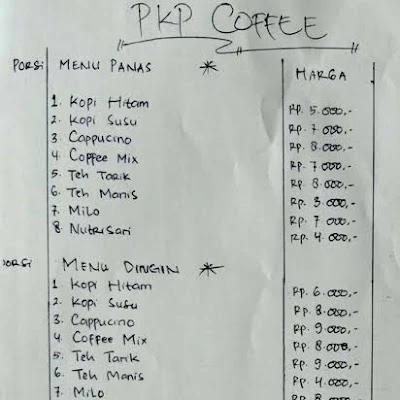 PKP COFFEE
PORSI MENU PANAS HARGA
1. Kopi Hitam Rp. 5.000,-
2. Kopi Susu Rp. 7.000,-
3. Cappucino Rp. 8.000,-
4. Coffee Mix Rp. 7.000,-
5. Teh Tarik Rp. 8.000,-
6. Teh Manis Rp. 3.000,-
7. Milo Rp. 7.000,-
8. Nutrisari Rp. 4.000,-
PORSI MENU DINGIN
1. Kopi Hitam Rp. 6.000,-
2. Kopi Susu Rp. 8.000,-
3. Cappucino Rp. 9.000,-
4. Coffee Mix Rp. 8.000,-
5. Teh Tarik Rp. 9.000,-
6. Teh Manis Rp. 4.000,-
7. Milo